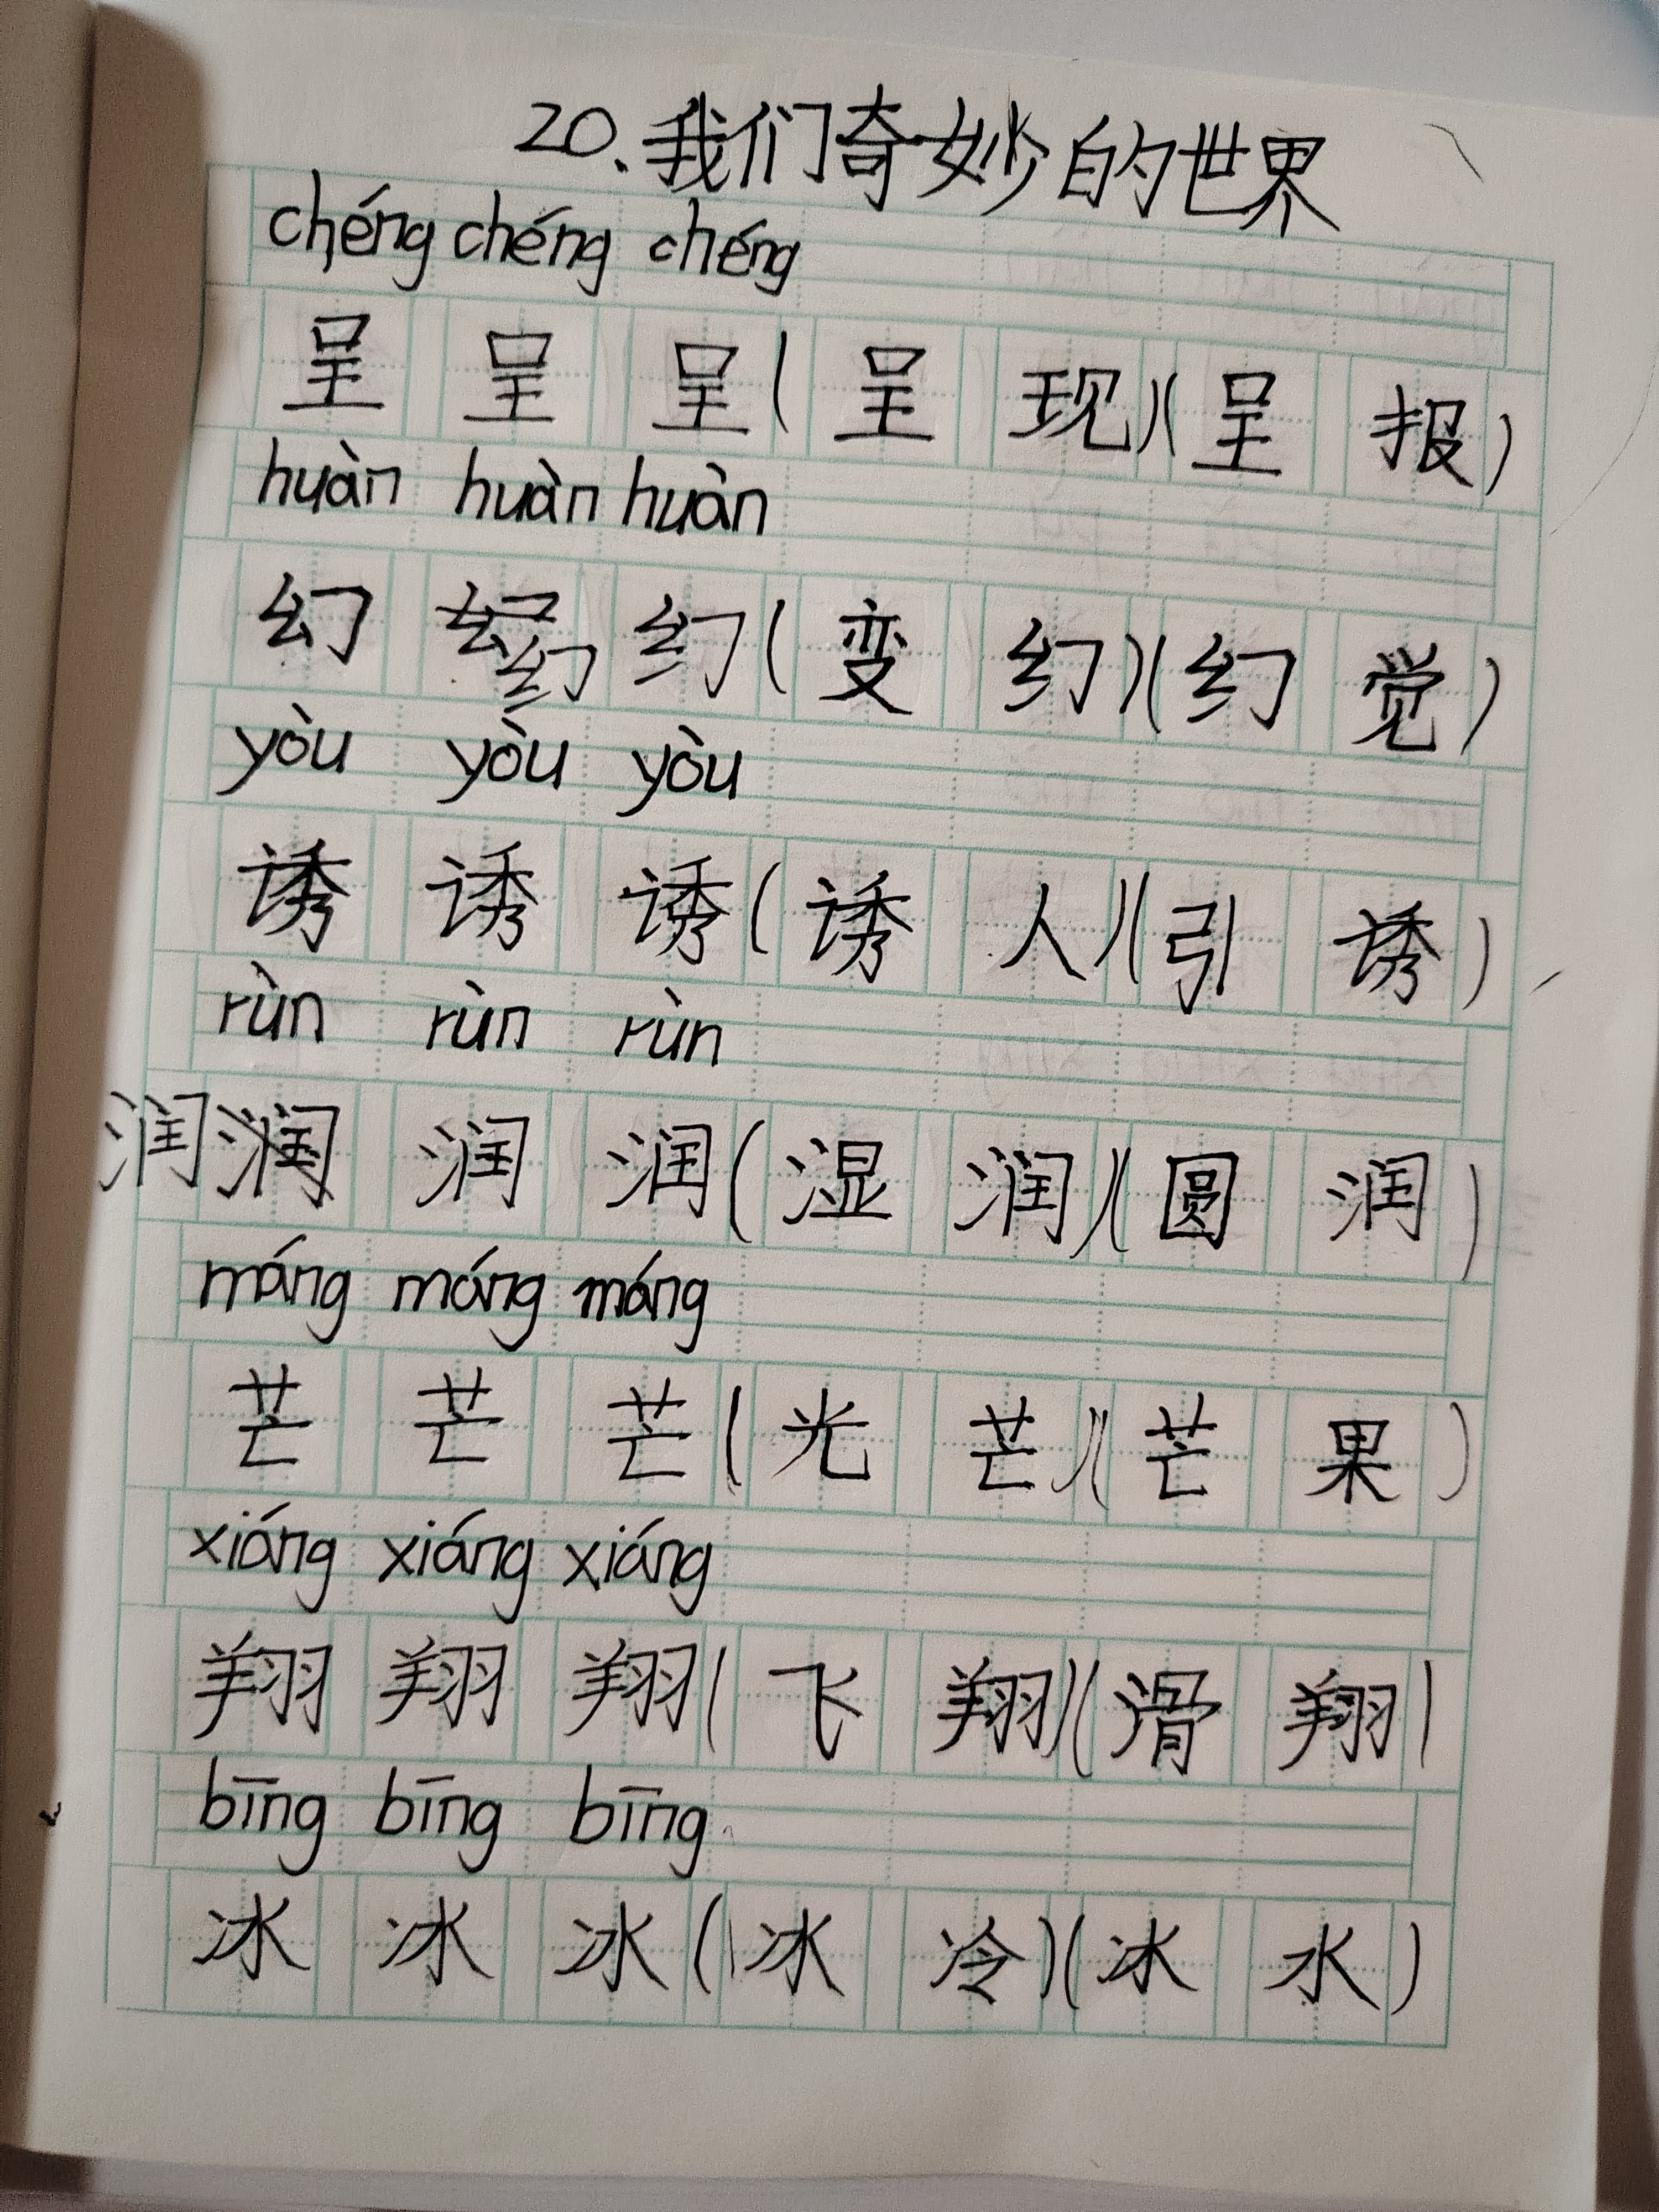 20.我们奇妙的世界
chéng chéng chéng
呈 呈 呈(呈现)(呈报)
huàn huàn huàn
幻 幻 幻(变幻)(幻觉)
yòu yòu yòu
诱 诱 诱(诱人)(引诱)
rùn rùn rùn
润 润 润 润(湿润)(圆润)
máng máng máng
芒 芒 芒(光芒)(芒果)
xiáng xiáng xiáng
翔 翔 翔(飞翔)(滑翔)
bīng bīng bīng
冰 冰 冰(冰冷)(冰水)